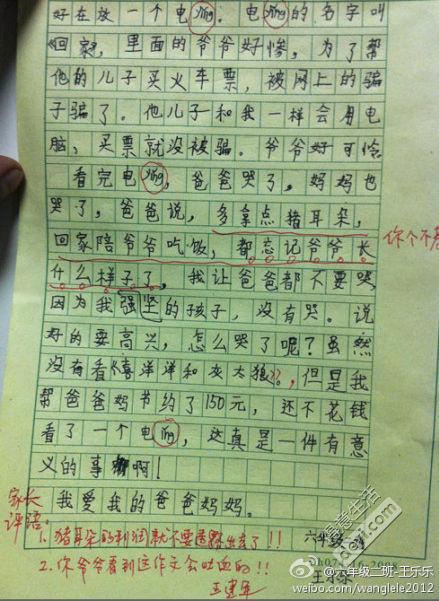 好在放一个电ying. 电ying的名字叫
《回家》, 里面的爷爷好惨, 为了帮
他的儿子买火车票, 被网上的骗
子骗了。他儿子和我一样会用电
脑, 买票就没被骗。爷爷好可怜
看完电ying, 爸爸哭了, 妈妈也
哭了, 爸爸说, 多拿点猪耳朵,
回家陪爷爷吃饭, 都忘记爷爷长
你个不孝
什么样子了, 我让爸爸都不要哭,
因为我强坚的孩子, 没有哭。说
好的要高兴, 怎么哭了呢? 虽然
没有看《喜洋洋和灰太狼》, 但是我
帮爸爸妈节约了150元, 还不花钱
看了一个电ying, 这真是一件有意
义的事啊!
我爱我的爸爸妈妈。
家长
评语:
1. 猪耳朵的利润就不要透露出去了!!
六年级二班
2. 你爷爷看到这作文会吐血的!!
王建军
王乐乐
@六年级二班-王乐乐
weibo.com/wanglele2012